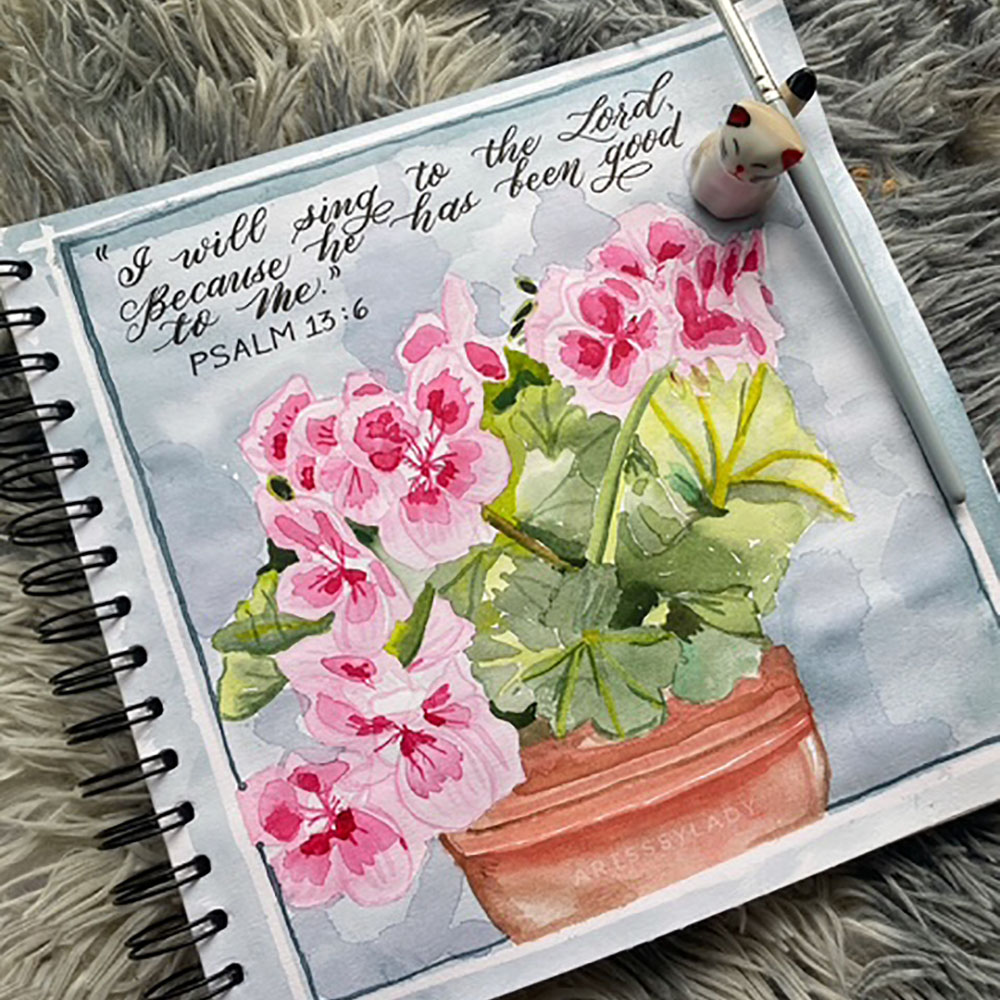 "I will sing to the Lord,
Because he has been good
to me."
PSALM 13:6
ARTSSSYLADY